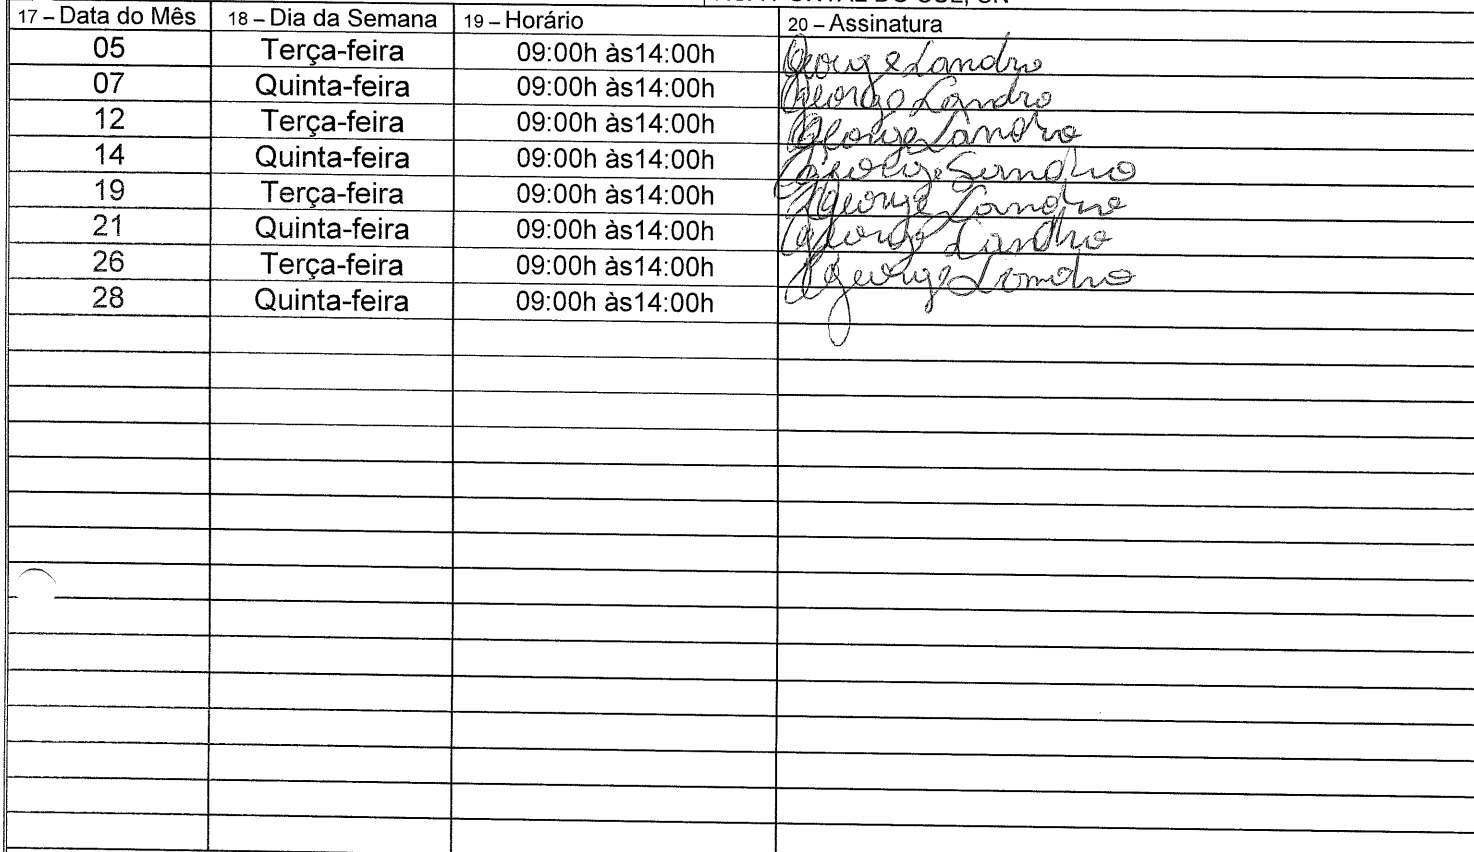 17 – Data do Mês 18 – Dia da Semana 19 – Horário 20 – Assinatura
05 Terça-feira 09:00h às14:00h George Landro
07 Quinta-feira 09:00h às14:00h George Landro
12 Terça-feira 09:00h às14:00h George Landro
14 Quinta-feira 09:00h às14:00h George
19 Terça-feira 09:00h às14:00h George Landro
21 Quinta-feira 09:00h às14:00h George Landro
26 Terça-feira 09:00h às14:00h George
28 Quinta-feira 09:00h às14:00h